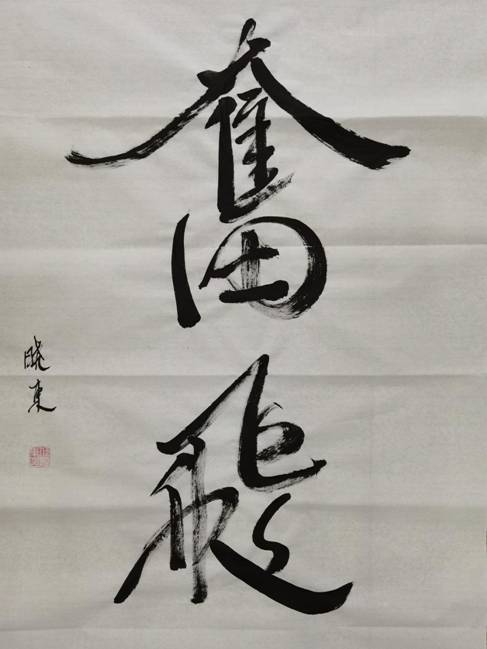 奮飛
曉東